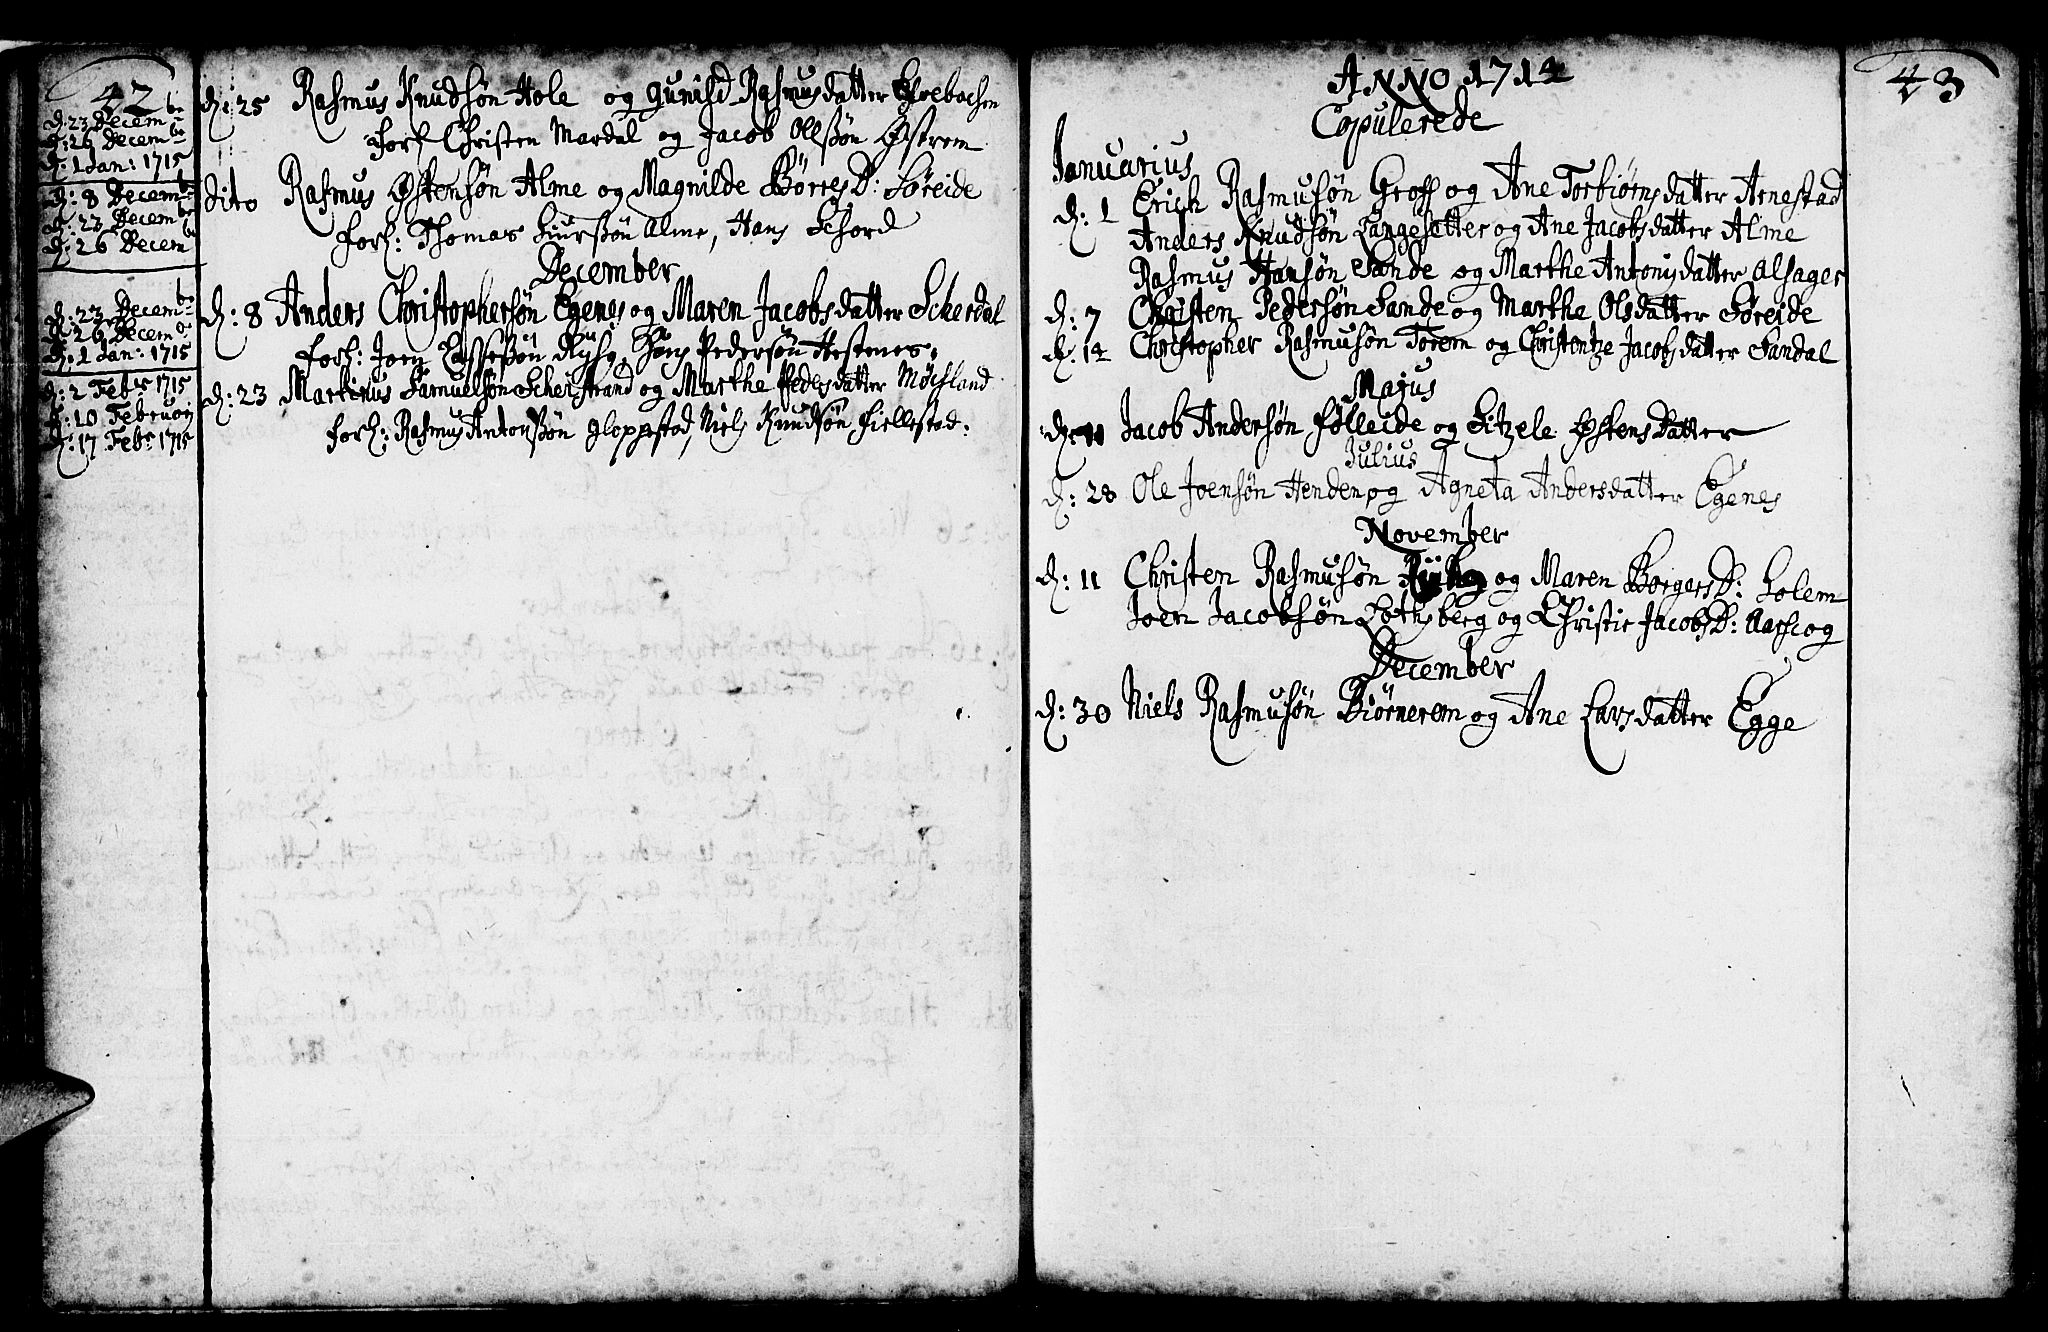 42
d: 23 Decembr
d: 26 Decembr
d: 1 Jan: 1715
d: 8 Decembr
d: 23 Decembr
d: 26 Decembr
d: 23 Decembr
d: 26 Decembr
d: 1 Jan: 1715
d: 2 Febr 1715
d: 10 Februarj
d: 17 Febr 1715
d: 25 Rasmus Knudsøn Hole og Gunild Rasmusdatter
forl Christen Mardal og Jacob Ollssøn Østrem
Dito Rasmus Østensøn Alme og Magnilde Børres D: Søreide
forl: Thomas Siurssøn Alme, Hans
December
d: 8 Anders Christophersøn Egenes og Maren Jacobsdatter Scherdal
forl: Joen Lassessøn Rysg, Pedersøn Hestenes,
d: 23 Martinus Samuelsøn Scheistrand og Marthe Pedersdatter Møcsland
forl: Rasmus Antonssøn Gloppestad, Niels Knudssøn Fiellestad:
43
ANNO 1714
Copulerede
Januarius
d: 1 Erich Rasmusøn Groff og Ane Torbiørnsdatter Arnestad
Anders Knudsøn Langesetter og Ane Jacobsdatter Alme
Rasmus Hansøn Sande og Marthe Antonisdatter Alsager
d: 7 Christen Pedersøn Sande og Marthe Olsdatter Søreide
d: 14 Christopher Rasmusøn Torem og Christentze Jacobsdatter Sandal
Majus
d: 11 Jacob Andersøn Følleide og Sitzele Østensdatter
Julius
d: 28 Ole Joensøn Henden og Agneta Andersdatter Egenes
November
d: 11 Christen Rasmusøn og Maren Borgers D: Solem
Joen Jacobsøn Lothsberg og Christie Jacobs D: Aascog
December
d: 30 Niels Rasmusøn Biørnerem og Ane Larsdatter Egge